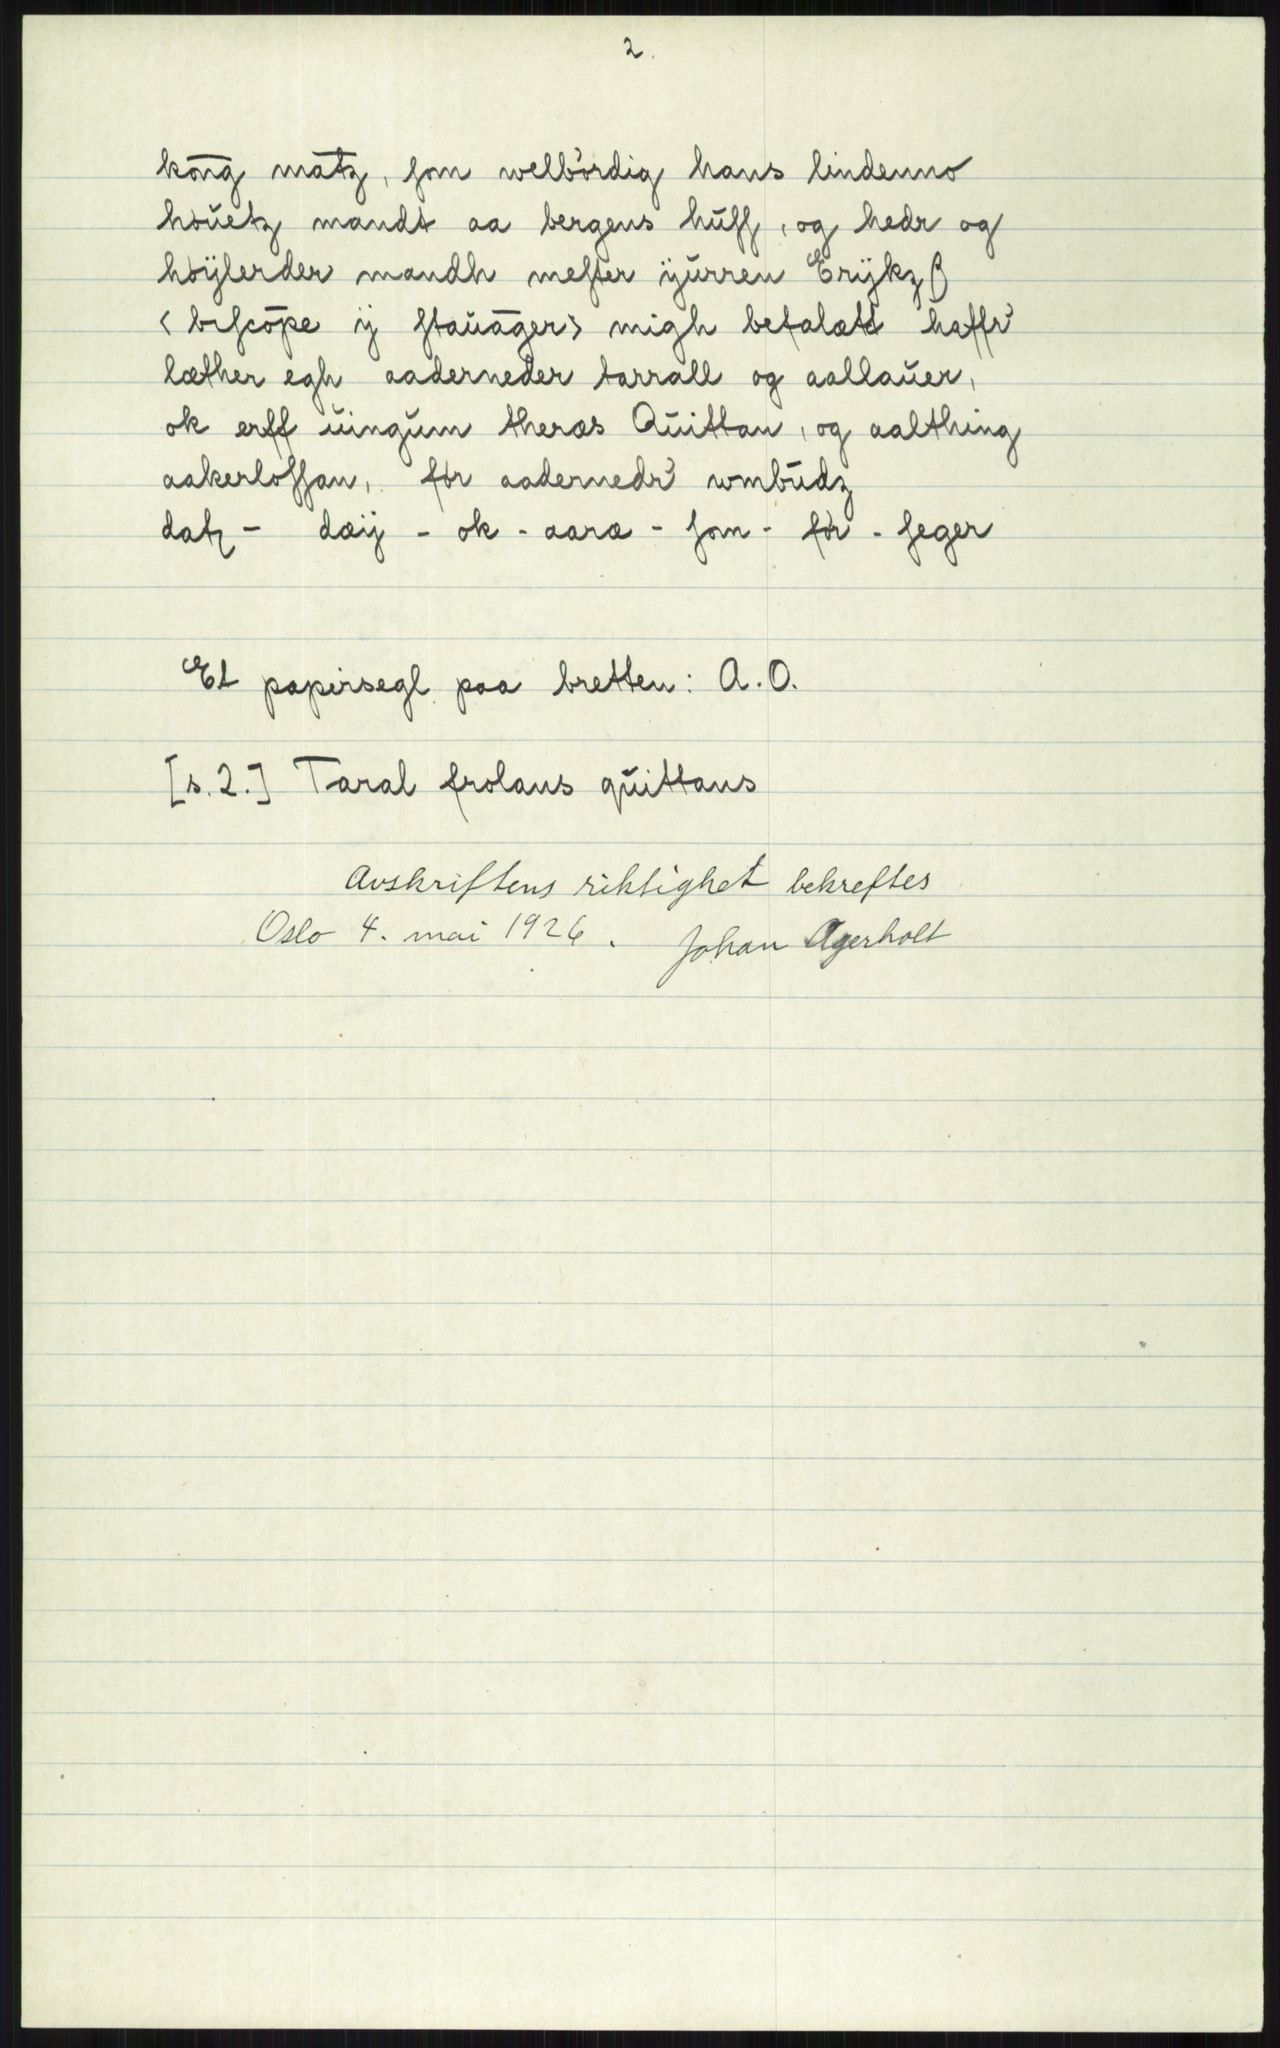 2.
kōng matz, ſom welbördig hans lindenno
höuetz mandt aa bergens huſſ, og hedr og
höÿlerder mandh meſter ÿurren Erÿkzß
<biſcōpe ÿ ſtauāger> migh betalætt haffr
læther egh aaderneder tarrall og aallauer,
ok erff uingum theræs Quittan, og aalthing
aakerloſſan, för aadernedr wmbūdz
datz - dæÿ - ok - aara - ſom - för - ſeger
Et papirsegl paa bretten: A. O.
[s. 2.] Taral frolans quittans
Avskriftens riktighet bekreftes
Oslo 4. mai 1926. Johan Agerholt